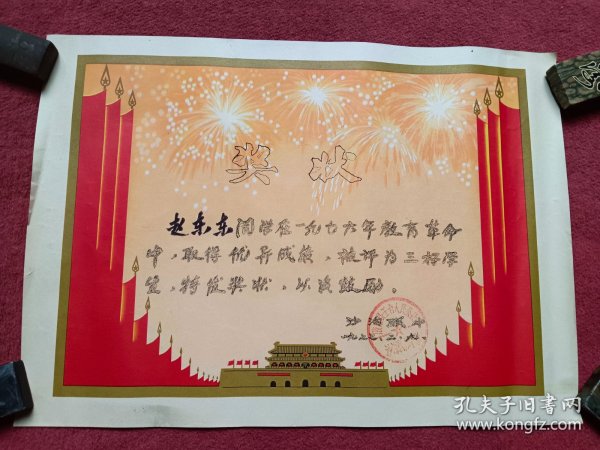 奖状
赵东东同学在一九七六年教育革命
中,取得优异成绩,被评为三好学
生,特发奖状,以资鼓励。
孔夫子旧书网
www.kongfz.com